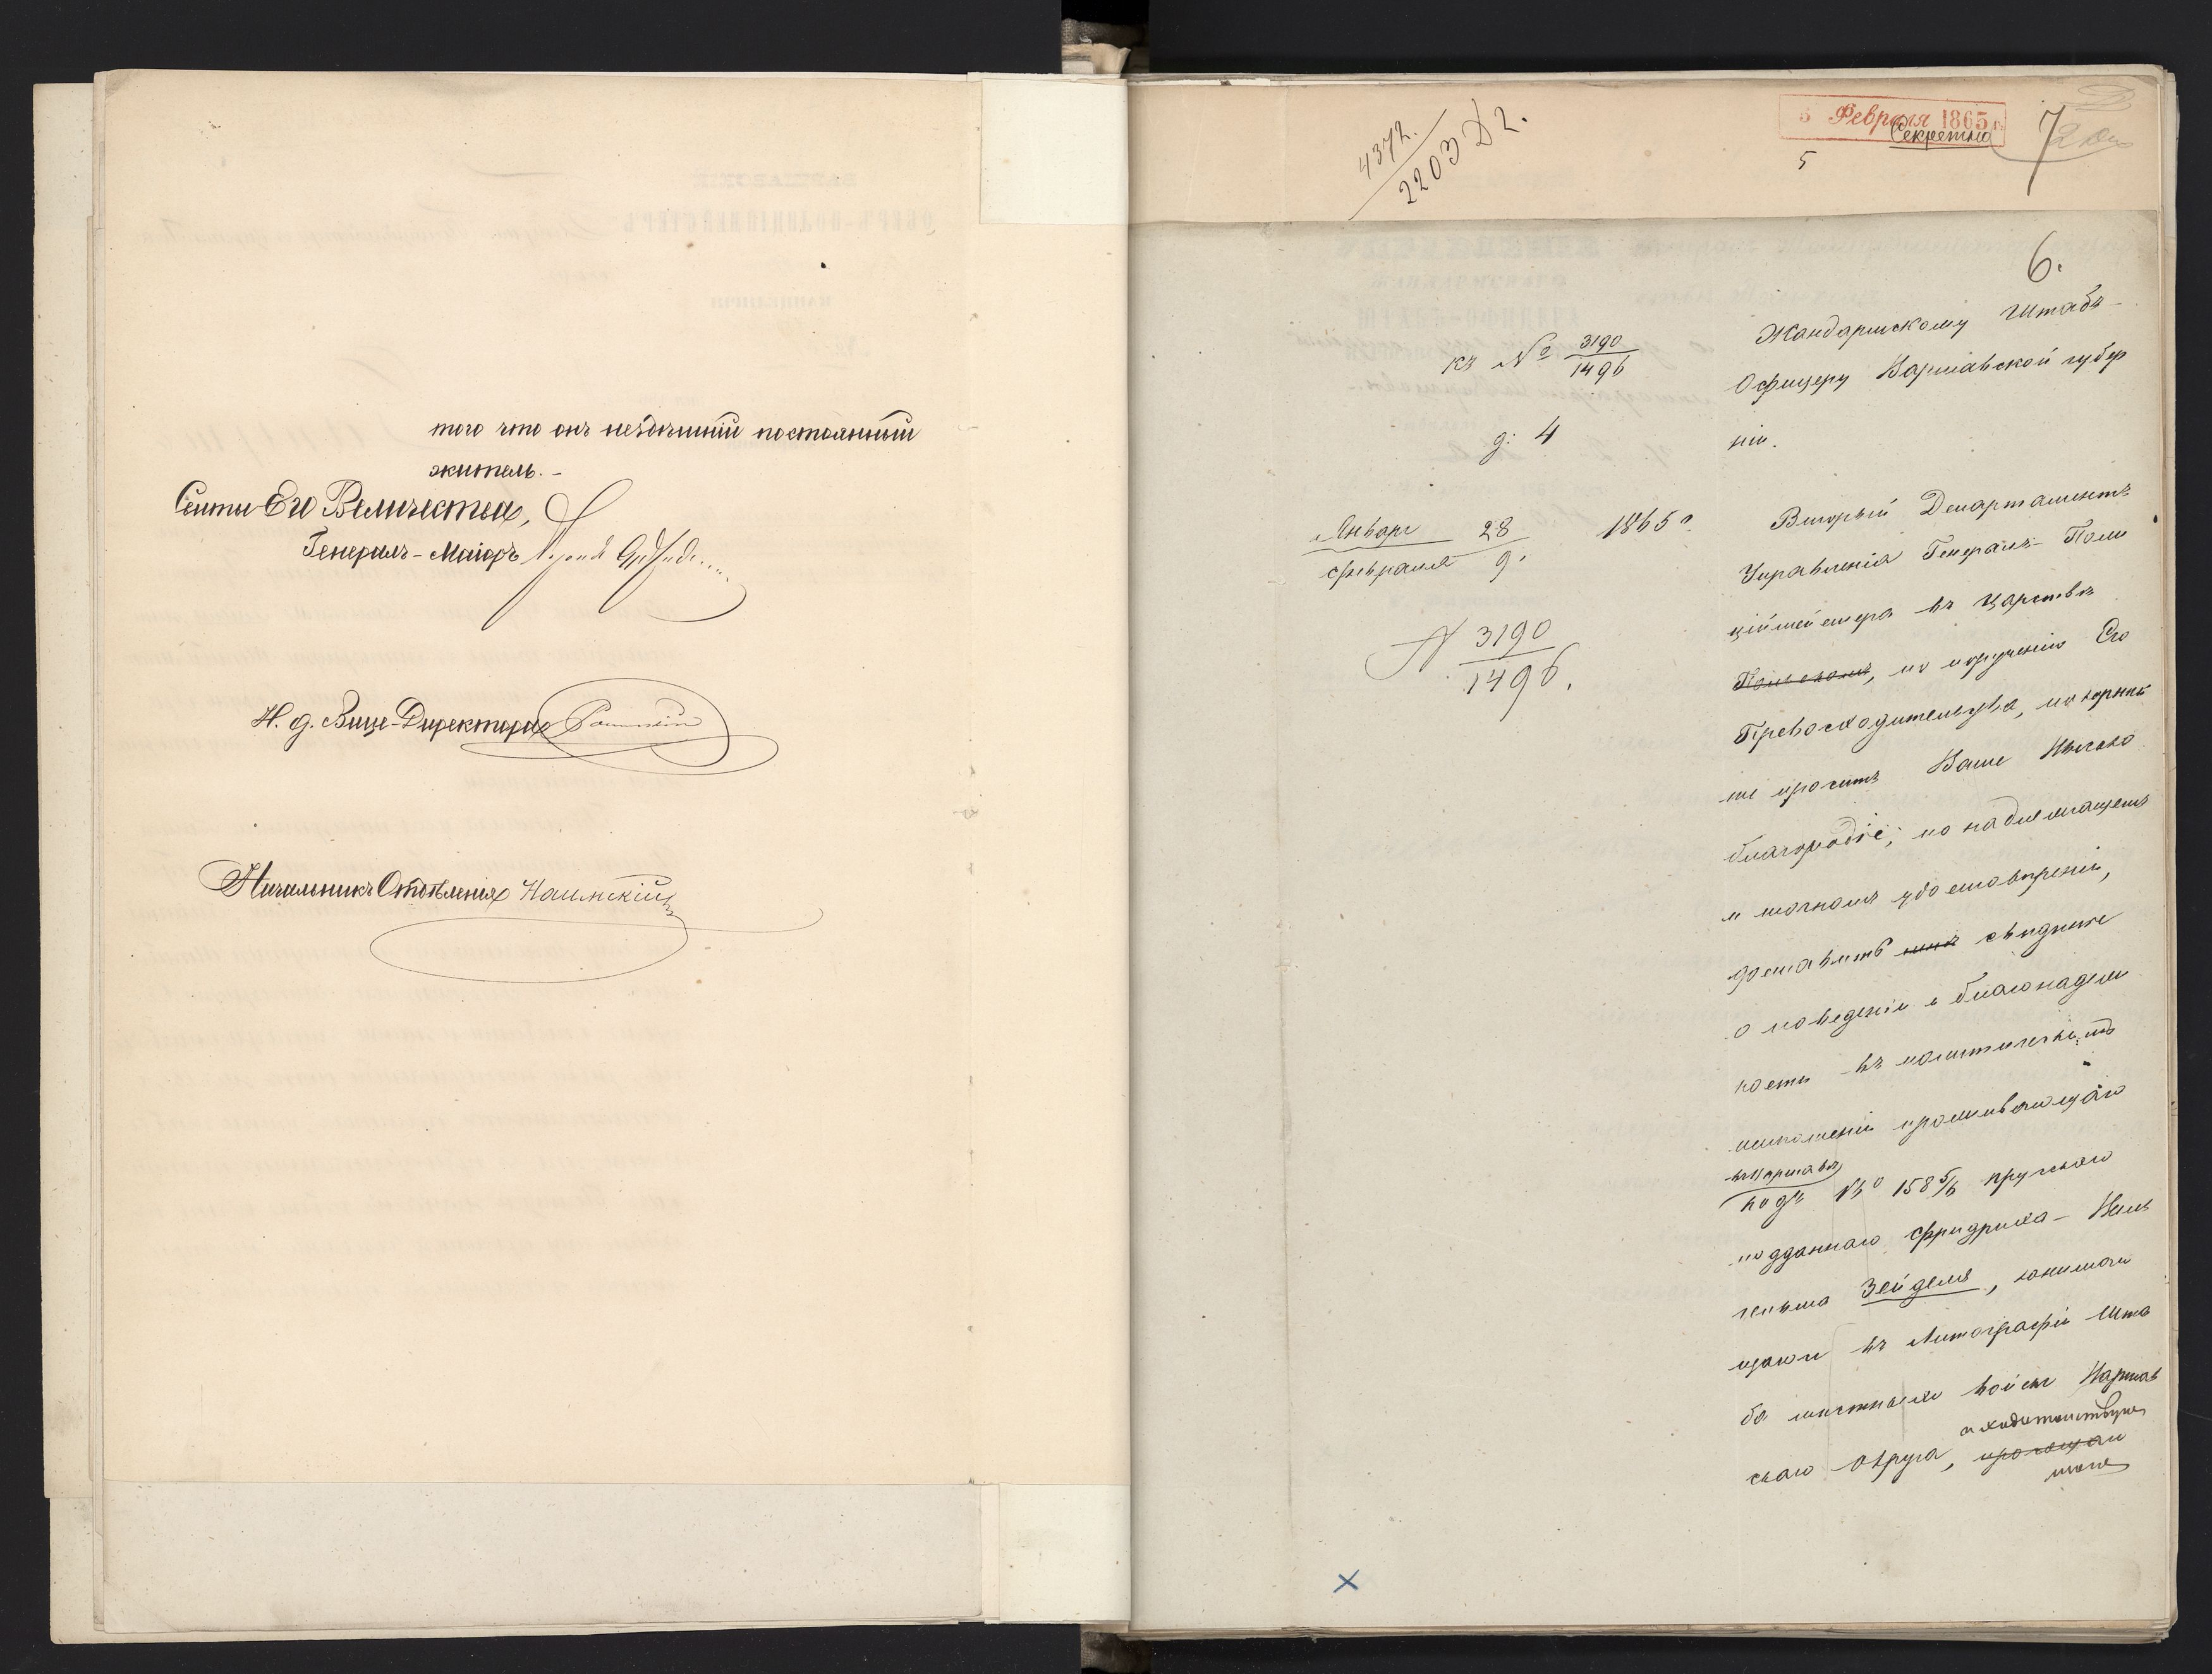 того что онъ нездѣшній постоянный
житель. –
Свиты Его Величества,
Генералъ-Маіоръ
И. д. Вице-Директора
Начальникъ Отдѣленія
4372.
2203 Д 2.
5 Февраля 1865 г.
Секретно
5
7
6.
къ № 3190
1496
д: 4
Января 28 1865 г.
Февраля 9.
N 3190
1496.
Жандармскому Штабъ-
Офицеру Варшавской губер
ніи.
Вторый Департаментъ
Управленія Генералъ-Поли
ційместера въ Царствѣ
Польскомъ, по порученію Его
Превосходительства, покорнѣй
ше проситъ Ваше Высоко
благородіе, по надлежащемъ
и точномъ удостовѣреніи,
доставить свѣдѣніе
о поведеніи и благонадеж
ности въ политическомъ
отношеніи проживающаго
въ Варшавѣ
подъ № 158 5/6 прусскаго
подданнаго Фридриха-Виль
гельма Зейделя, занимаю
щагося въ Литографіи Шта
ба мѣстныхъ войскъ Варшав
скаго Округа, просящаго
о ходатайствую